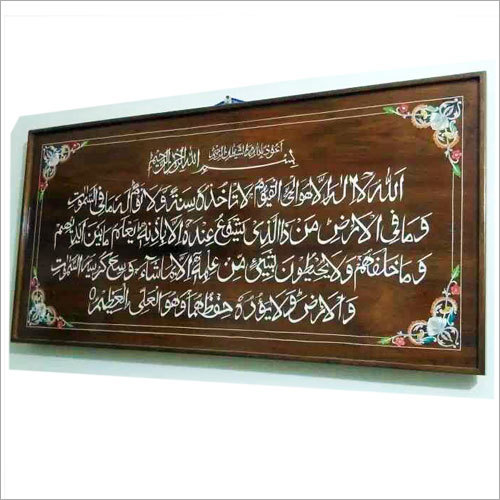 اعوذ بالله من الشيطان الرجيم
بسم الله الرحمن الرحيم
الله لا اله الا هو الحي القيوم لا تاخذه سنة ولا نوم له ما في السموت
وما في الارض من ذا الذي يشفع عنده الا باذنه يعلم ما بين ايديهم
وما خلفهم ولا يحيطون بشيئ من علمه الا بما شاء وسع كرسيه السموت
والارض ولا يؤده حفظهما وهو العلي العظيم